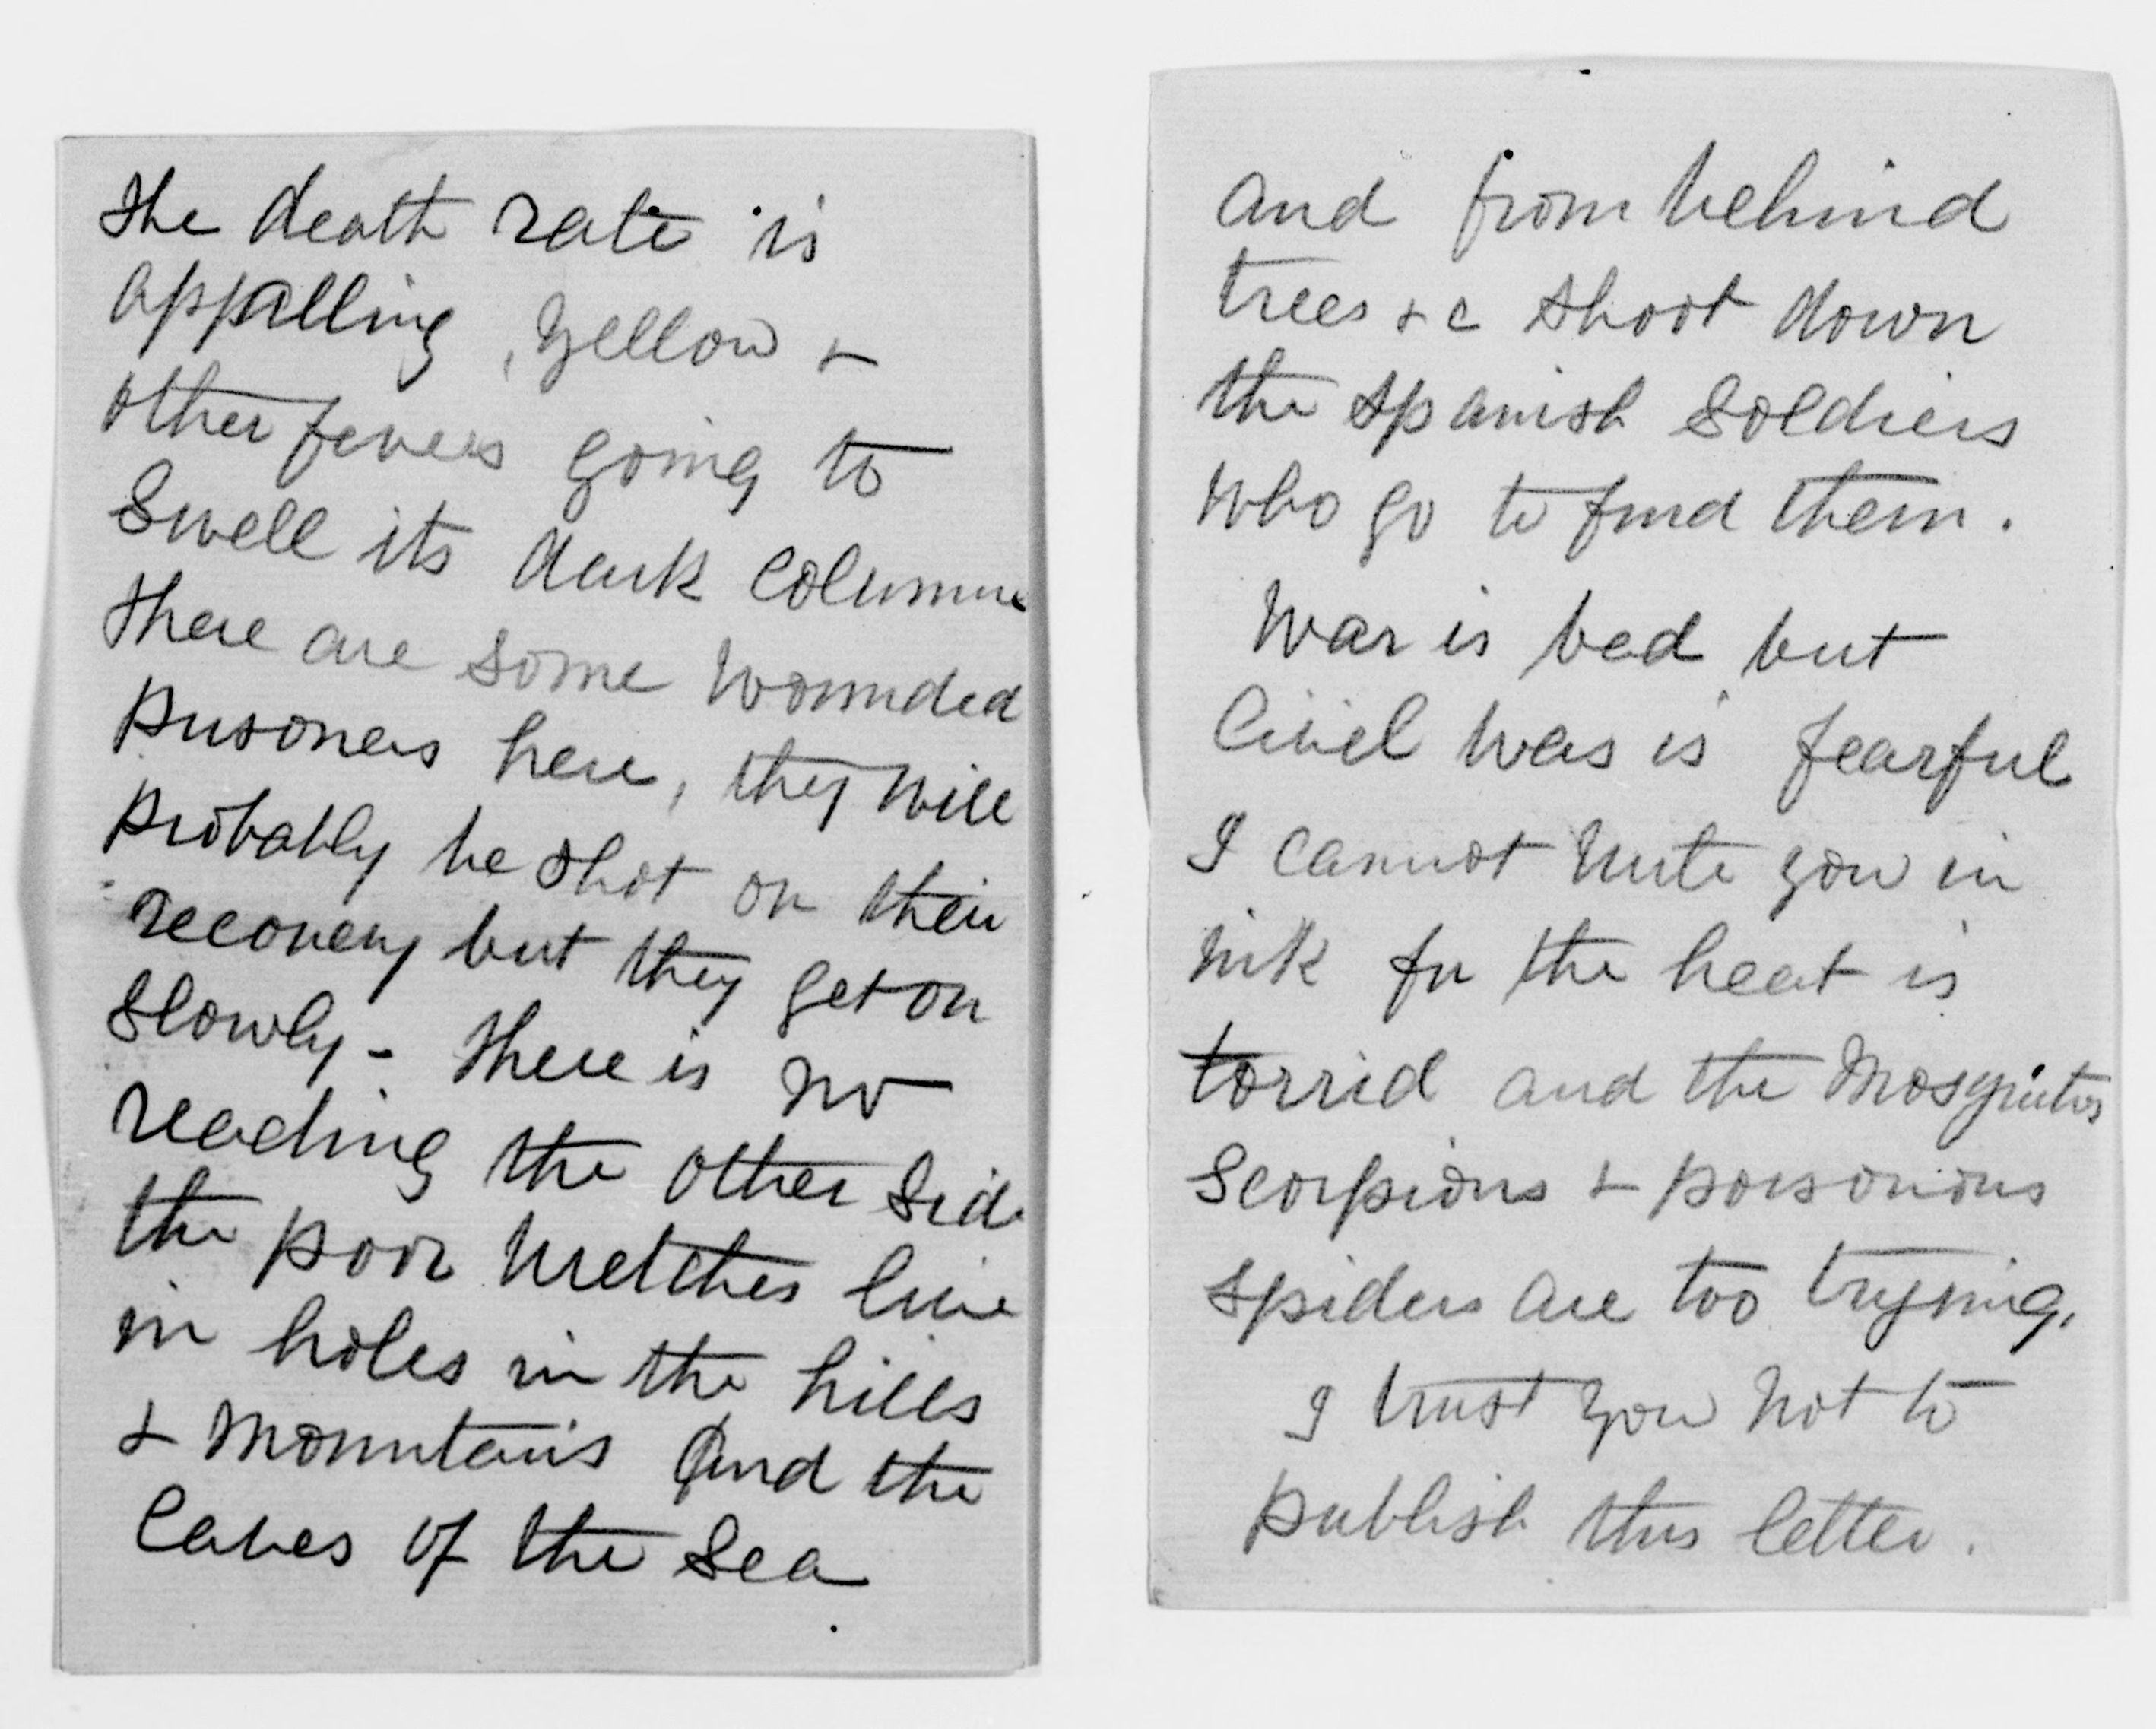 the death rate is
appalling, yellow &
other fevers going to
swell its dark column
there are some wounded
prisoners here, they will
probably be shot on their
recovery but they get on
slowly - there is no
reading the other side
the poor wretches live
in holes in the hills
& mountains and the
caves of the sea
and from behind
trees &c shoot down
the Spanish soldiers
who go to find them.
War is bad but
civil war is fearful
I cannot write you in
ink for the heat is
torrid and the mosquitos
scorpions & poisonous
spiders are too trying.
I trust you not to
publish this letter.